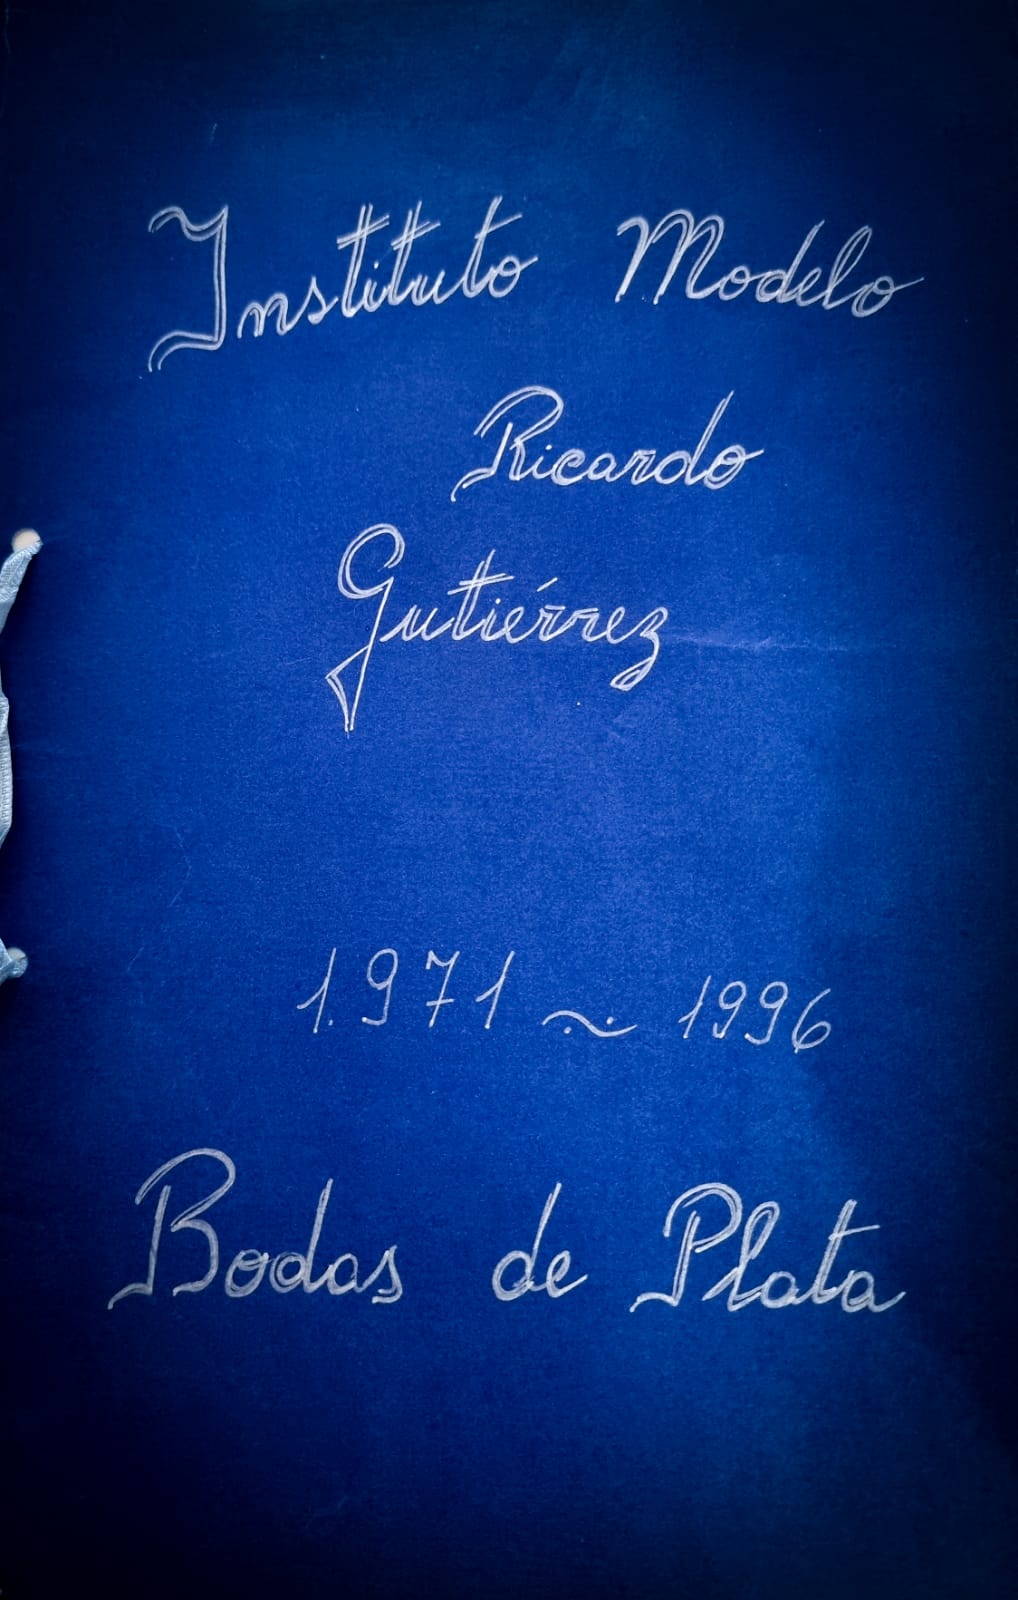 Instituto Modelo
Ricardo
Gutiérrez
1.971 ~ 1996
Bodas de Plata